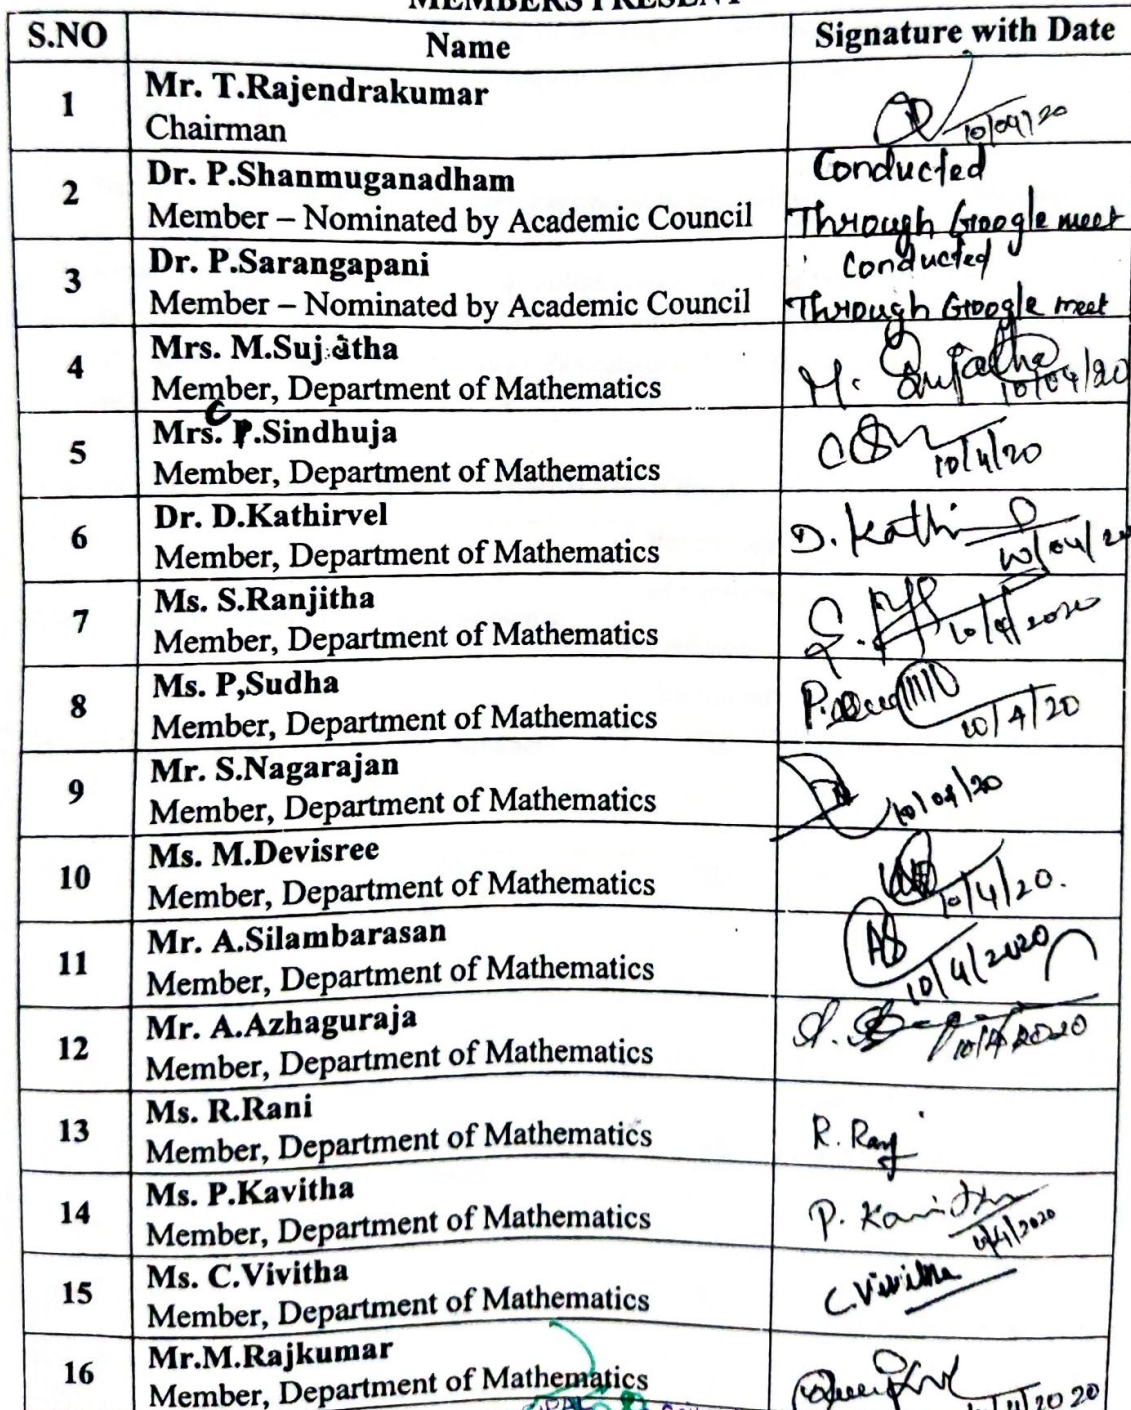 MEMBERS PRESENT
S.NO Name Signature with Date
1 Mr. T.Rajendrakumar
Chairman
10/04/20
2 Dr. P.Shanmuganadham Conducted
Member – Nominated by Academic Council Through Google meet
3 Dr. P.Sarangapani Conducted
Member – Nominated by Academic Council Through Google meet
4 Mrs. M.Sujatha M. Sujatha
Member, Department of Mathematics 10/04/20
5 Mrs. C.Sindhuja
Member, Department of Mathematics 10/4/20
6 Dr. D.Kathirvel D. Kathi
Member, Department of Mathematics 10/04/20
7 Ms. S.Ranjitha
Member, Department of Mathematics 10/4/2020
8 Ms. P,Sudha
Member, Department of Mathematics 10/4/20
9 Mr. S.Nagarajan
Member, Department of Mathematics 10/04/20
10 Ms. M.Devisree
Member, Department of Mathematics 10/4/20.
11 Mr. A.Silambarasan AS
Member, Department of Mathematics 10/4/2020
12 Mr. A.Azhaguraja
Member, Department of Mathematics 10/4/2020
13 Ms. R.Rani
Member, Department of Mathematics R.
14 Ms. P.Kavitha P. Kavitha
Member, Department of Mathematics
15 Ms. C.Vivitha C. Vivitha
Member, Department of Mathematics
16 Mr.M.Rajkumar
Member, Department of Mathematics